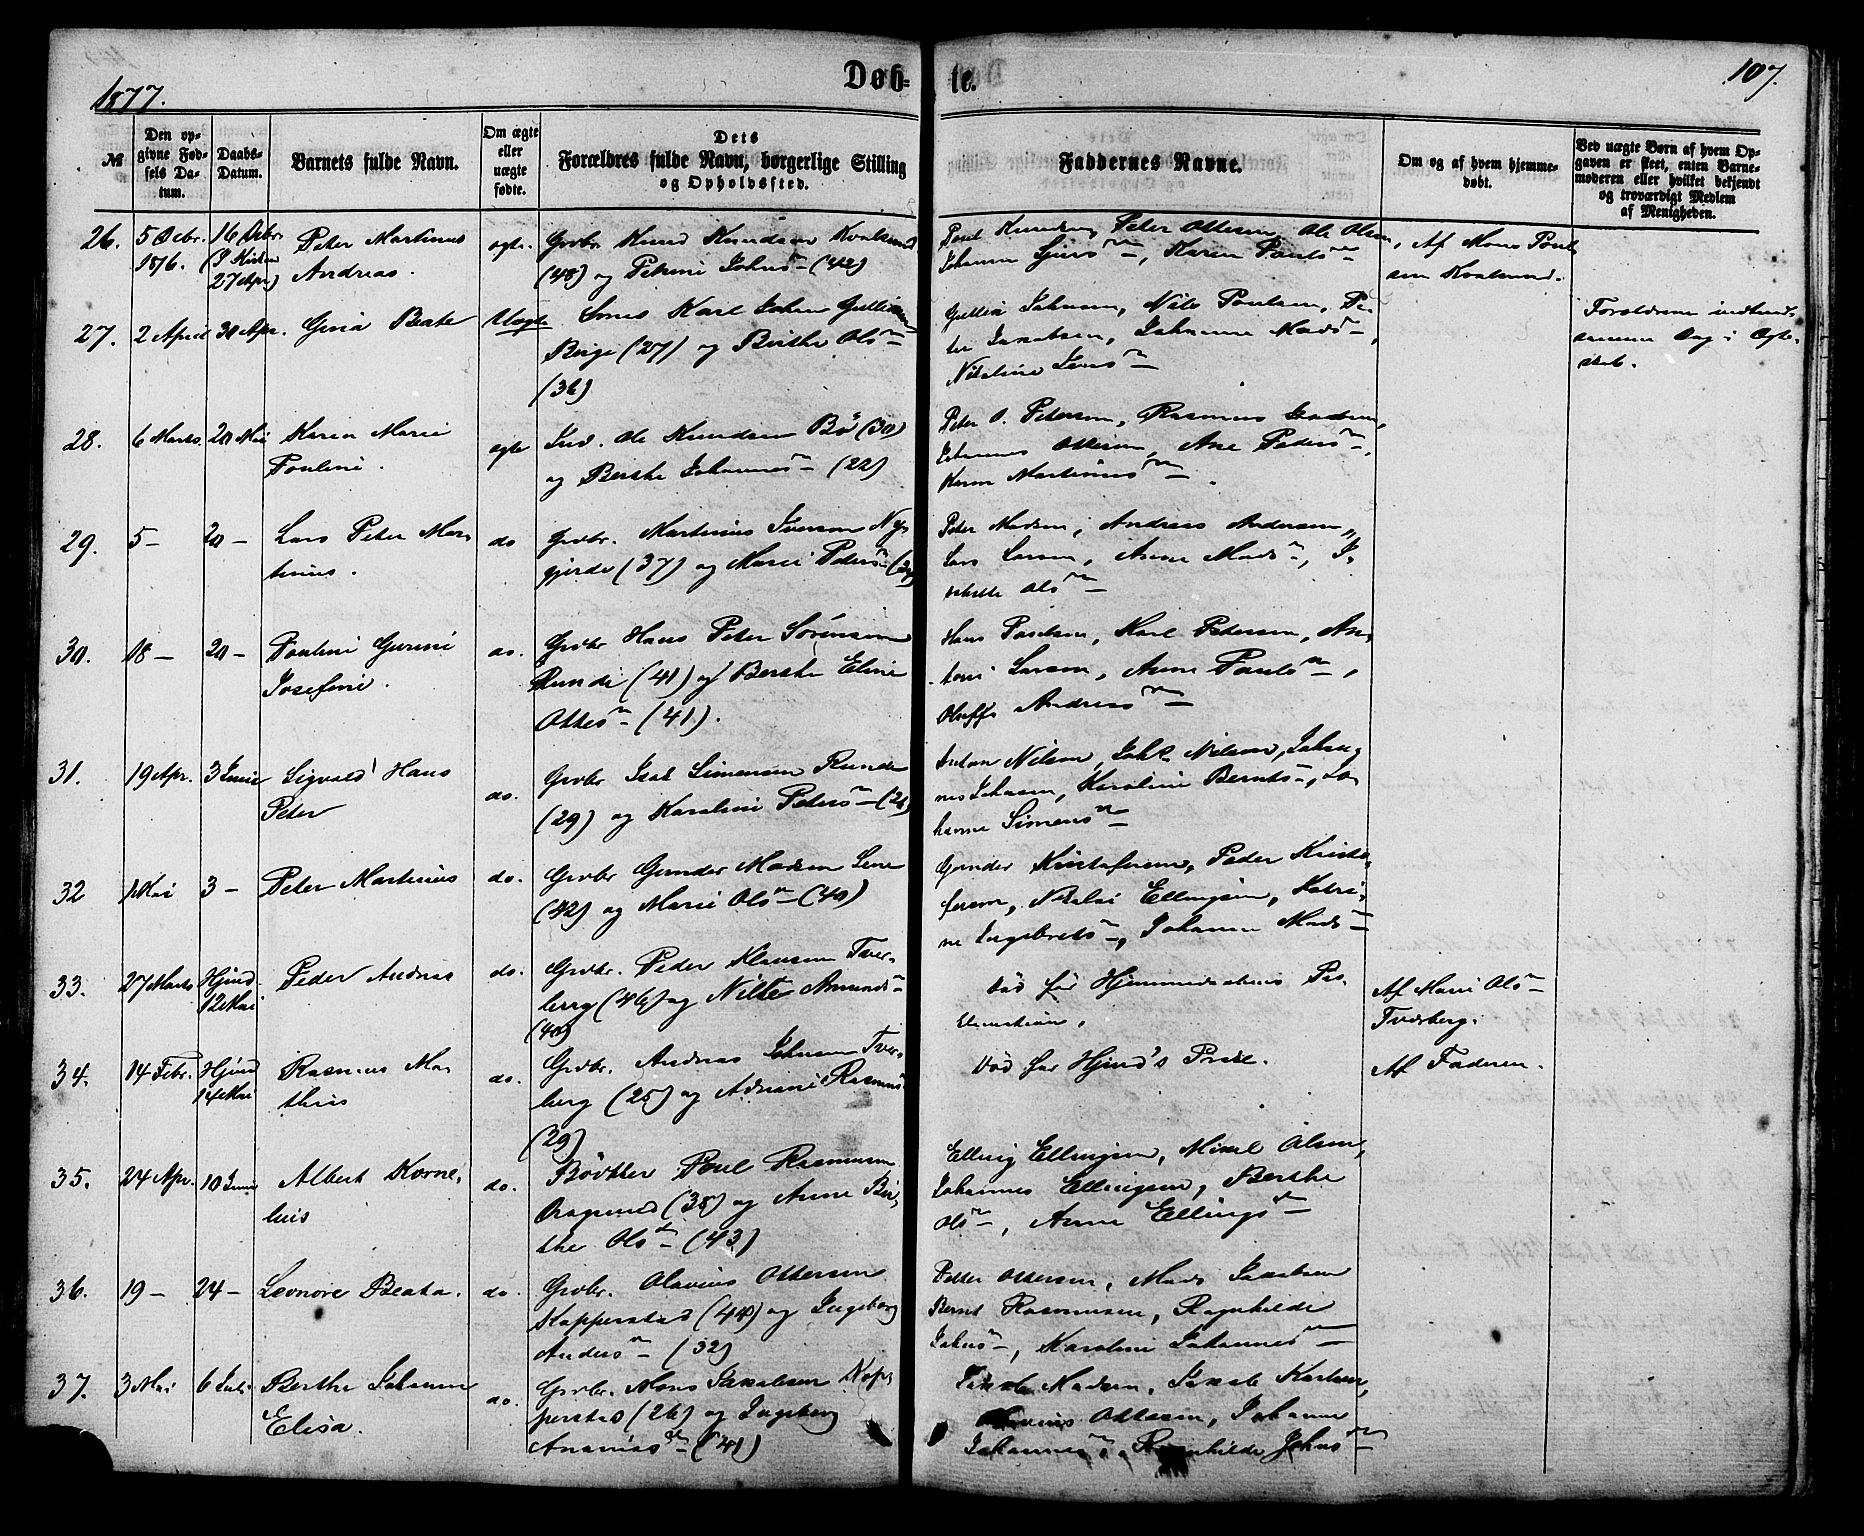 1877.
Døb-
te.
107.
№
Den op-
givne Fød-
sels Da-
tum.
Daabs-
Datum.
Barnets fulde Navn.
Om ægte
eller
uægte
fødte.
Dets
Forældres fulde Navn, borgerlige Stilling
og Opholdssted.
Faddernes Navne.
Om og af hvem hjemme-
døbt.
Ved uægte Børn af hvem Op-
gaven er skeet, enten Barne-
moderen eller hvilket bekjendt
og troværdigt Medlem
af Menigheden.
26.
5 Decbr.
1876.
16 Decbr
(I Kirken
27 Apr.)
Peter Martinus
Andreas.
ægte.
Grbr. Knud Knudsen Kvalsund
(48) og Petrine Johnsn (42)
Poul Knudsen, Peter Ottesen, Ole Olsen,
Johanne Sjursn, Karen Poulsn
Af Mons Poul
sen Kvalsund.
27.
2 April
30 Apr.
Gina Beate
Uægte
Karl Johan
Berge (27) og Berthe Olsn
(36)
Johnsen, Nils Poulsen, Pe-
ter Jacobsen, Johanne Madsn,
Nikoline Jensn
Forældrene indtraadte
samme Dag i Ægte-
skab.
28.
6 Marts
20 Mai
Karen Marie
Pouline.
ægte
Ole Knudsen Bø (30)
og Berthe Johannesn (22)
Peter O. Petersen, Rasmus Knudsen,
Johannes Ottesen, Ane Pedersn,
Karen Martinusn.
29.
5 —
20 —
Lars Peter Mar-
tinus.
do
Grbr. Martinus Iversen Nyg
gjerde (37) og Marie Petersn
Peter Madsen, Andreas Andersen,
Lars Larsen, Anne Madsn,
Olsn
30.
18 —
20 —
Pouline Gurine
Josefine.
do.
Grbr Hans Peter Sørensen
Runde (41) og Berthe Eline
Ottesn (41).
Hans Poulsen, Karl Petersen, An-
toni Larsen, Anne Poulsn,
Andreasn
31.
19 Apr.
3 Juni
Sigvald Hans
Peter
do.
Grbr Isak Simensen Runde
(29) og Karoline Petersn
Anton Nilsen, Nilsen, Johan-
nes Johnsen, Karoline Berntsn, Jo-
hanne Simensn
32
1 Mai
3 —
Peter Martinus
do.
Grbr Gunder Madsen
(42) og Marie Olsn (40)
Gunder Kristofersen, Peder Kristo-
fersen, Nikolai Ellingsen, Katri-
ne Ingebretsn, Johanne Madsn
33.
27 Marts
Hjmd
12 Mai
Peder Andreas
do.
Grbr. Peder Klausen Tver-
berg (46) og Amundsn
(40)
Død før Hjemmedaabens Pro-
clamation.
Af Marie Olsn
Tverberg.
34.
14 Febr.
Hjmd
14 Mai
Rasmus Ma
thias
do.
Grbr. Andreas Johnsen Tver-
berg (25) og Adriane Rasmusn
(29)
Død før Hjmd's Procl.
Af Faderen.
35.
24 Apr.
10 Juni
Albert Korne-
lius
do.
Bødker Poul Rasmussen
Dragsund (38) og Anne Ber-
the Olsd (43)
Elling Ellingsen, Mikal Olsen,
Johannes Ellingsen, Berthe
Olsn, Anne Ellingsd
36.
19 —
24 —
Leonore Beata.
do.
Grbr. Olavius Ottersen
Kopperstad (44) og Ingeborg
Andersn (32)
Petter Ottersen, Mads Jacobsen
Bernt Rasmussen, Ragnhilde
Johnsn, Karoline Johannesn
37.
3 Mai
6 Juli
Berthe Johanne
Elisa.
do.
Grbr. Mons Jacobsen Kop-
perstad (26) og Ingeborg
Ananiasd (41)
Jakob Madsen, Jakob Karlsen,
Olavius Ottesen, Johanne
Johannesn, Ragnhilde Johnsn